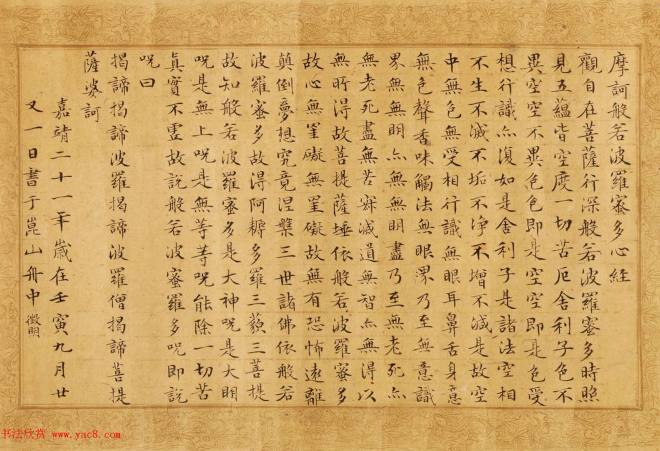 摩訶般若波羅蜜多心經
觀自在菩薩行深般若波羅蜜多時照
見五蘊皆空度一切苦厄舍利子色不
異空空不異色色即是空空即是色受
想行識亦復如是舍利子是諸法空相
不生不滅不垢不淨不增不減是故空
中無色無受想行識無眼耳鼻舌身意
無色聲香味觸法無眼界乃至無意識
界無無明亦無無明盡乃至無老死亦
無老死盡無苦集滅道無智亦無得以
無所得故菩提薩埵依般若波羅蜜多
故心無罣礙無罣礙故無有恐怖遠離
顛倒夢想究竟涅槃三世諸佛依般若
波羅蜜多故得阿耨多羅三藐三菩提
故知般若波羅蜜多是大神呪是大明
呪是無上呪是無等等呪能除一切苦
真實不虛故說般若波羅蜜多呪即說
呪曰
揭諦揭諦波羅揭諦波羅僧揭諦菩提
薩婆訶
嘉靖二十一年歲在壬寅九月廿
又一日書于崑山舟中 徵明
书法欣赏 www.yac8.com